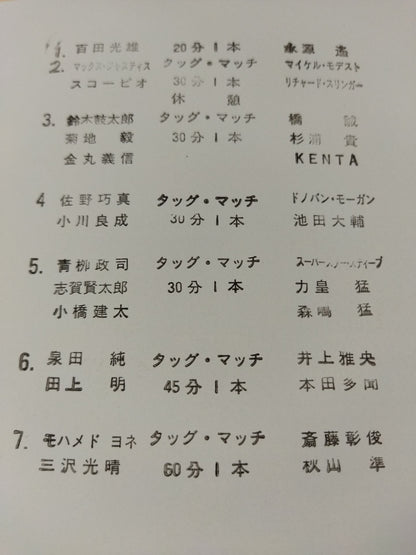 1. 百田光雄 20分1本 永源遙
2. マックス・ジャスティス タッグ・マッチ マイケル・モデスト
スコーピオ 30分1本 リチャード・スリンガー
休憩
3. 鈴木鼓太郎 タッグ・マッチ 橋誠
菊地毅 30分1本 杉浦貴
金丸義信 KENTA
4 佐野巧真 タッグ・マッチ ドノバン・モーガン
小川良成 30分1本 池田大輔
5. 青柳政司 タッグ・マッチ
志賀賢太郎 30分1本 力皇猛
小橋建太 森嶋猛
6. 泉田純 タッグ・マッチ 井上雅央
田上明 45分1本 本田多聞
7. モハメド ヨネ タッグ・マッチ 斎藤彰俊
三沢光晴 60分1本 秋山準